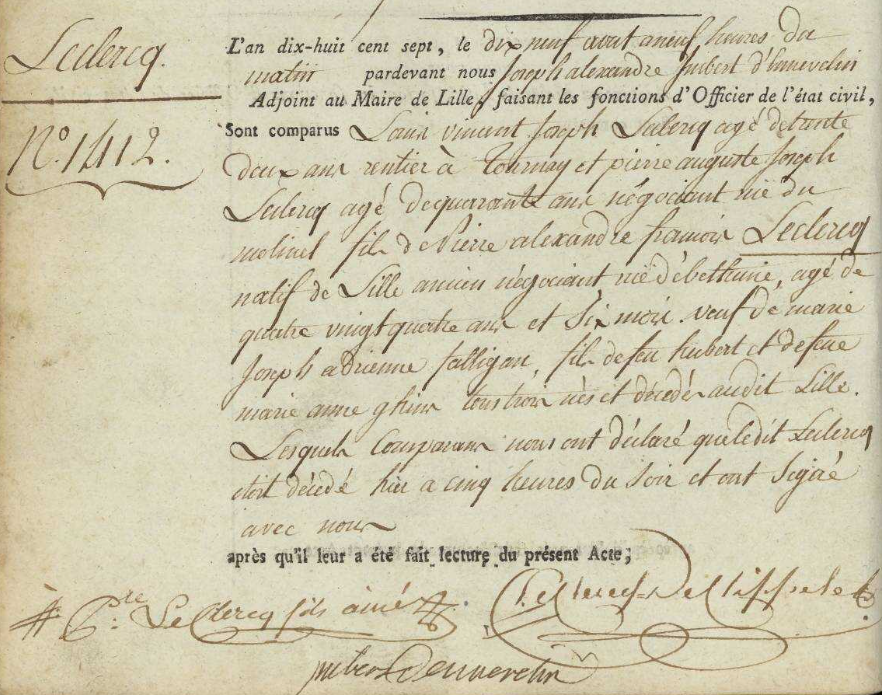 Leclercq.
N.° 1412.
L'an dix-huit cent sept, le dix neuf aout a neuf heures du
matin pardevant nous Joseph alexandre hubert d'hennevelin
Adjoint au Maire de Lille, faisant les fonctions d'Officier de l'état civil,
Sont comparus Louis vincent Joseph Leclercq agé de trente
deux ans rentier à Tournay et pierre auguste Joseph
Leclercq agé de quarante ans négociant rue du
molinel fils de Pierre alexandre francois Leclercq
natif de Lille ancien négociant rue de bethune, agé de
quatre vingt quatre ans et Six mois. veuf de marie
Joseph adrienne falligan, fils de feu hubert et de feue
marie anne ghins tous trois nés et décédés audit Lille.
Lesquels Comparans nous ont déclaré que ledit Leclercq
etoit décédé hier a cinq heures du Soir et ont Signé
avec nous
après qu'il leur a été fait lecture du présent Acte;
P.re Le Clercq fils ainé
Leclercq